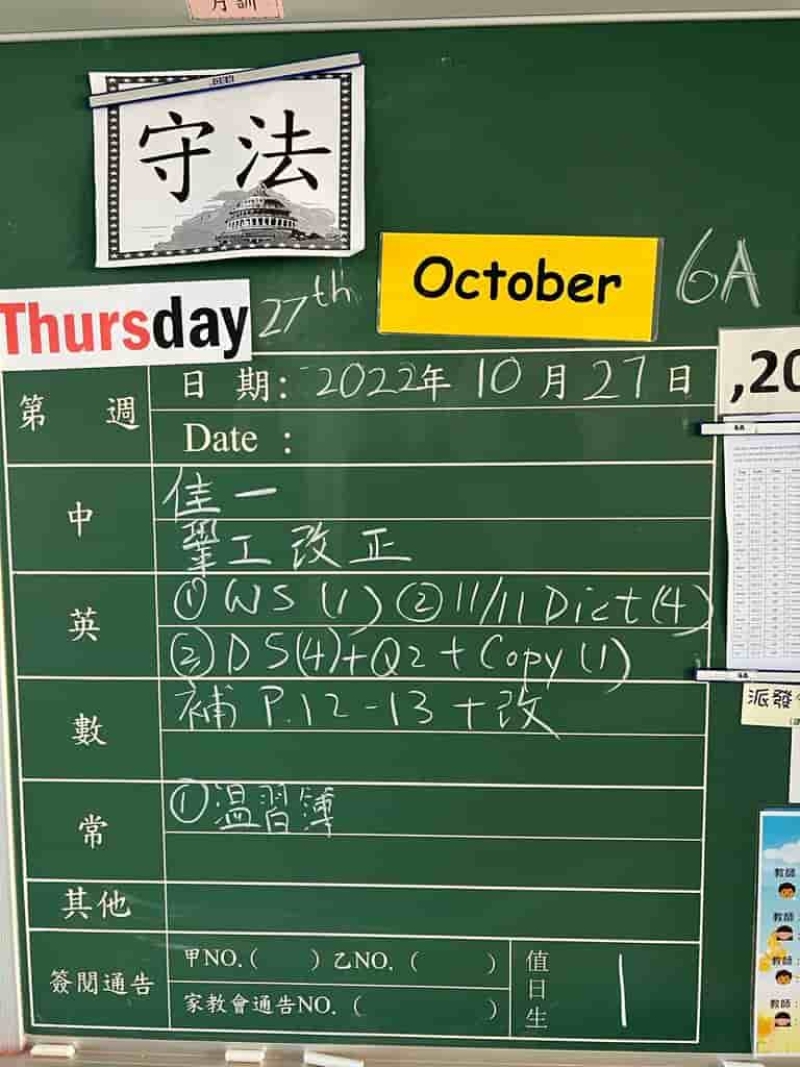 月訓
守法
October
6A
Thursday 27th
,20
第 週
日 期: 2022年 10 月 27 日
Date :
中
佳一
工 改正
英
① WS (1) ② 11/11 Dict (4)
② DS(4)+Q2 + Copy (1)
數
補 P.12-13 + 改
派發
常
① 温習簿
其他
簽閱通告
甲NO.( ) 乙NO. ( )
家教會通告NO. ( )
值日生
1
教師
教師
教師:
教師: